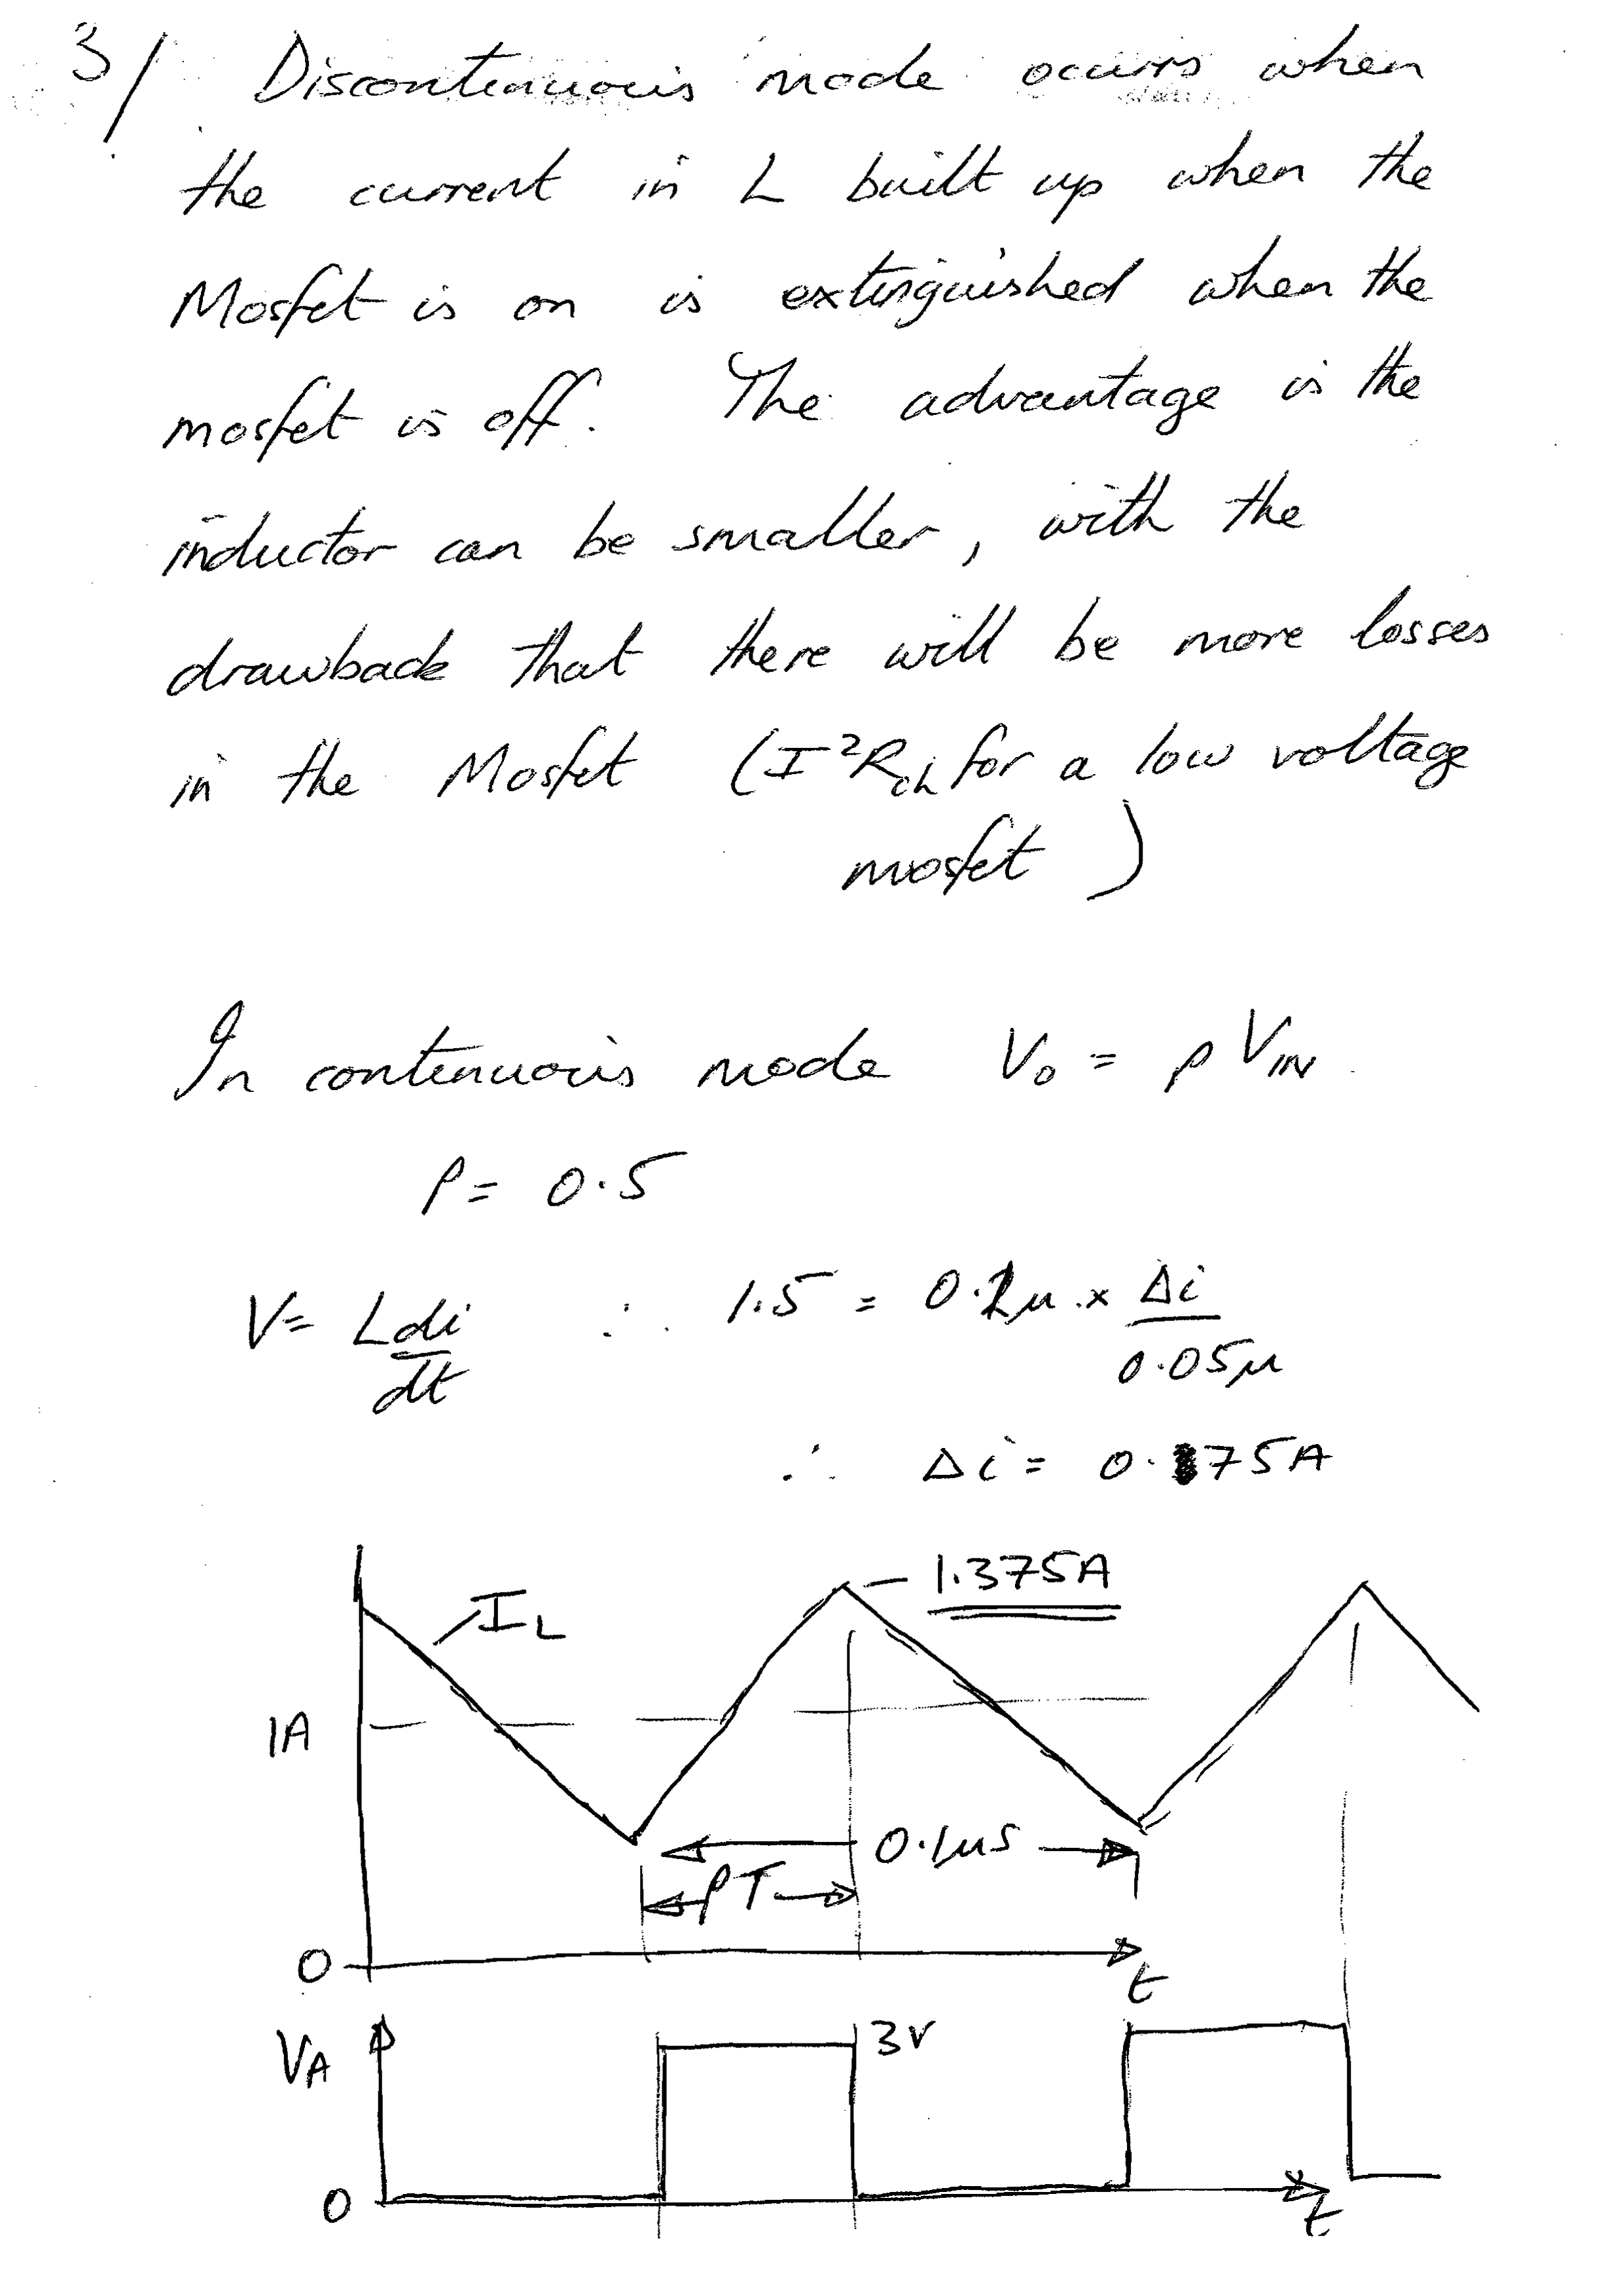 3/ Discontinuous mode occurs when
the current in L built up when the
Mosfet is on is extinguished when the
mosfet is off. The advantage is the
inductor can be smaller, with the
drawback that there will be more losses
in the Mosfet (I²R_ch for a low voltage
mosfet )
In continuous mode V₀ = ρ V_IN
ρ = 0.5
V = L di/dt ∴ 1.5 = 0.1μ × Δi/0.05μ
∴ Δi = 0.75A
1.375A
I_L
1A
0.1μs
ρT
0
t
V_A
3V
0
t